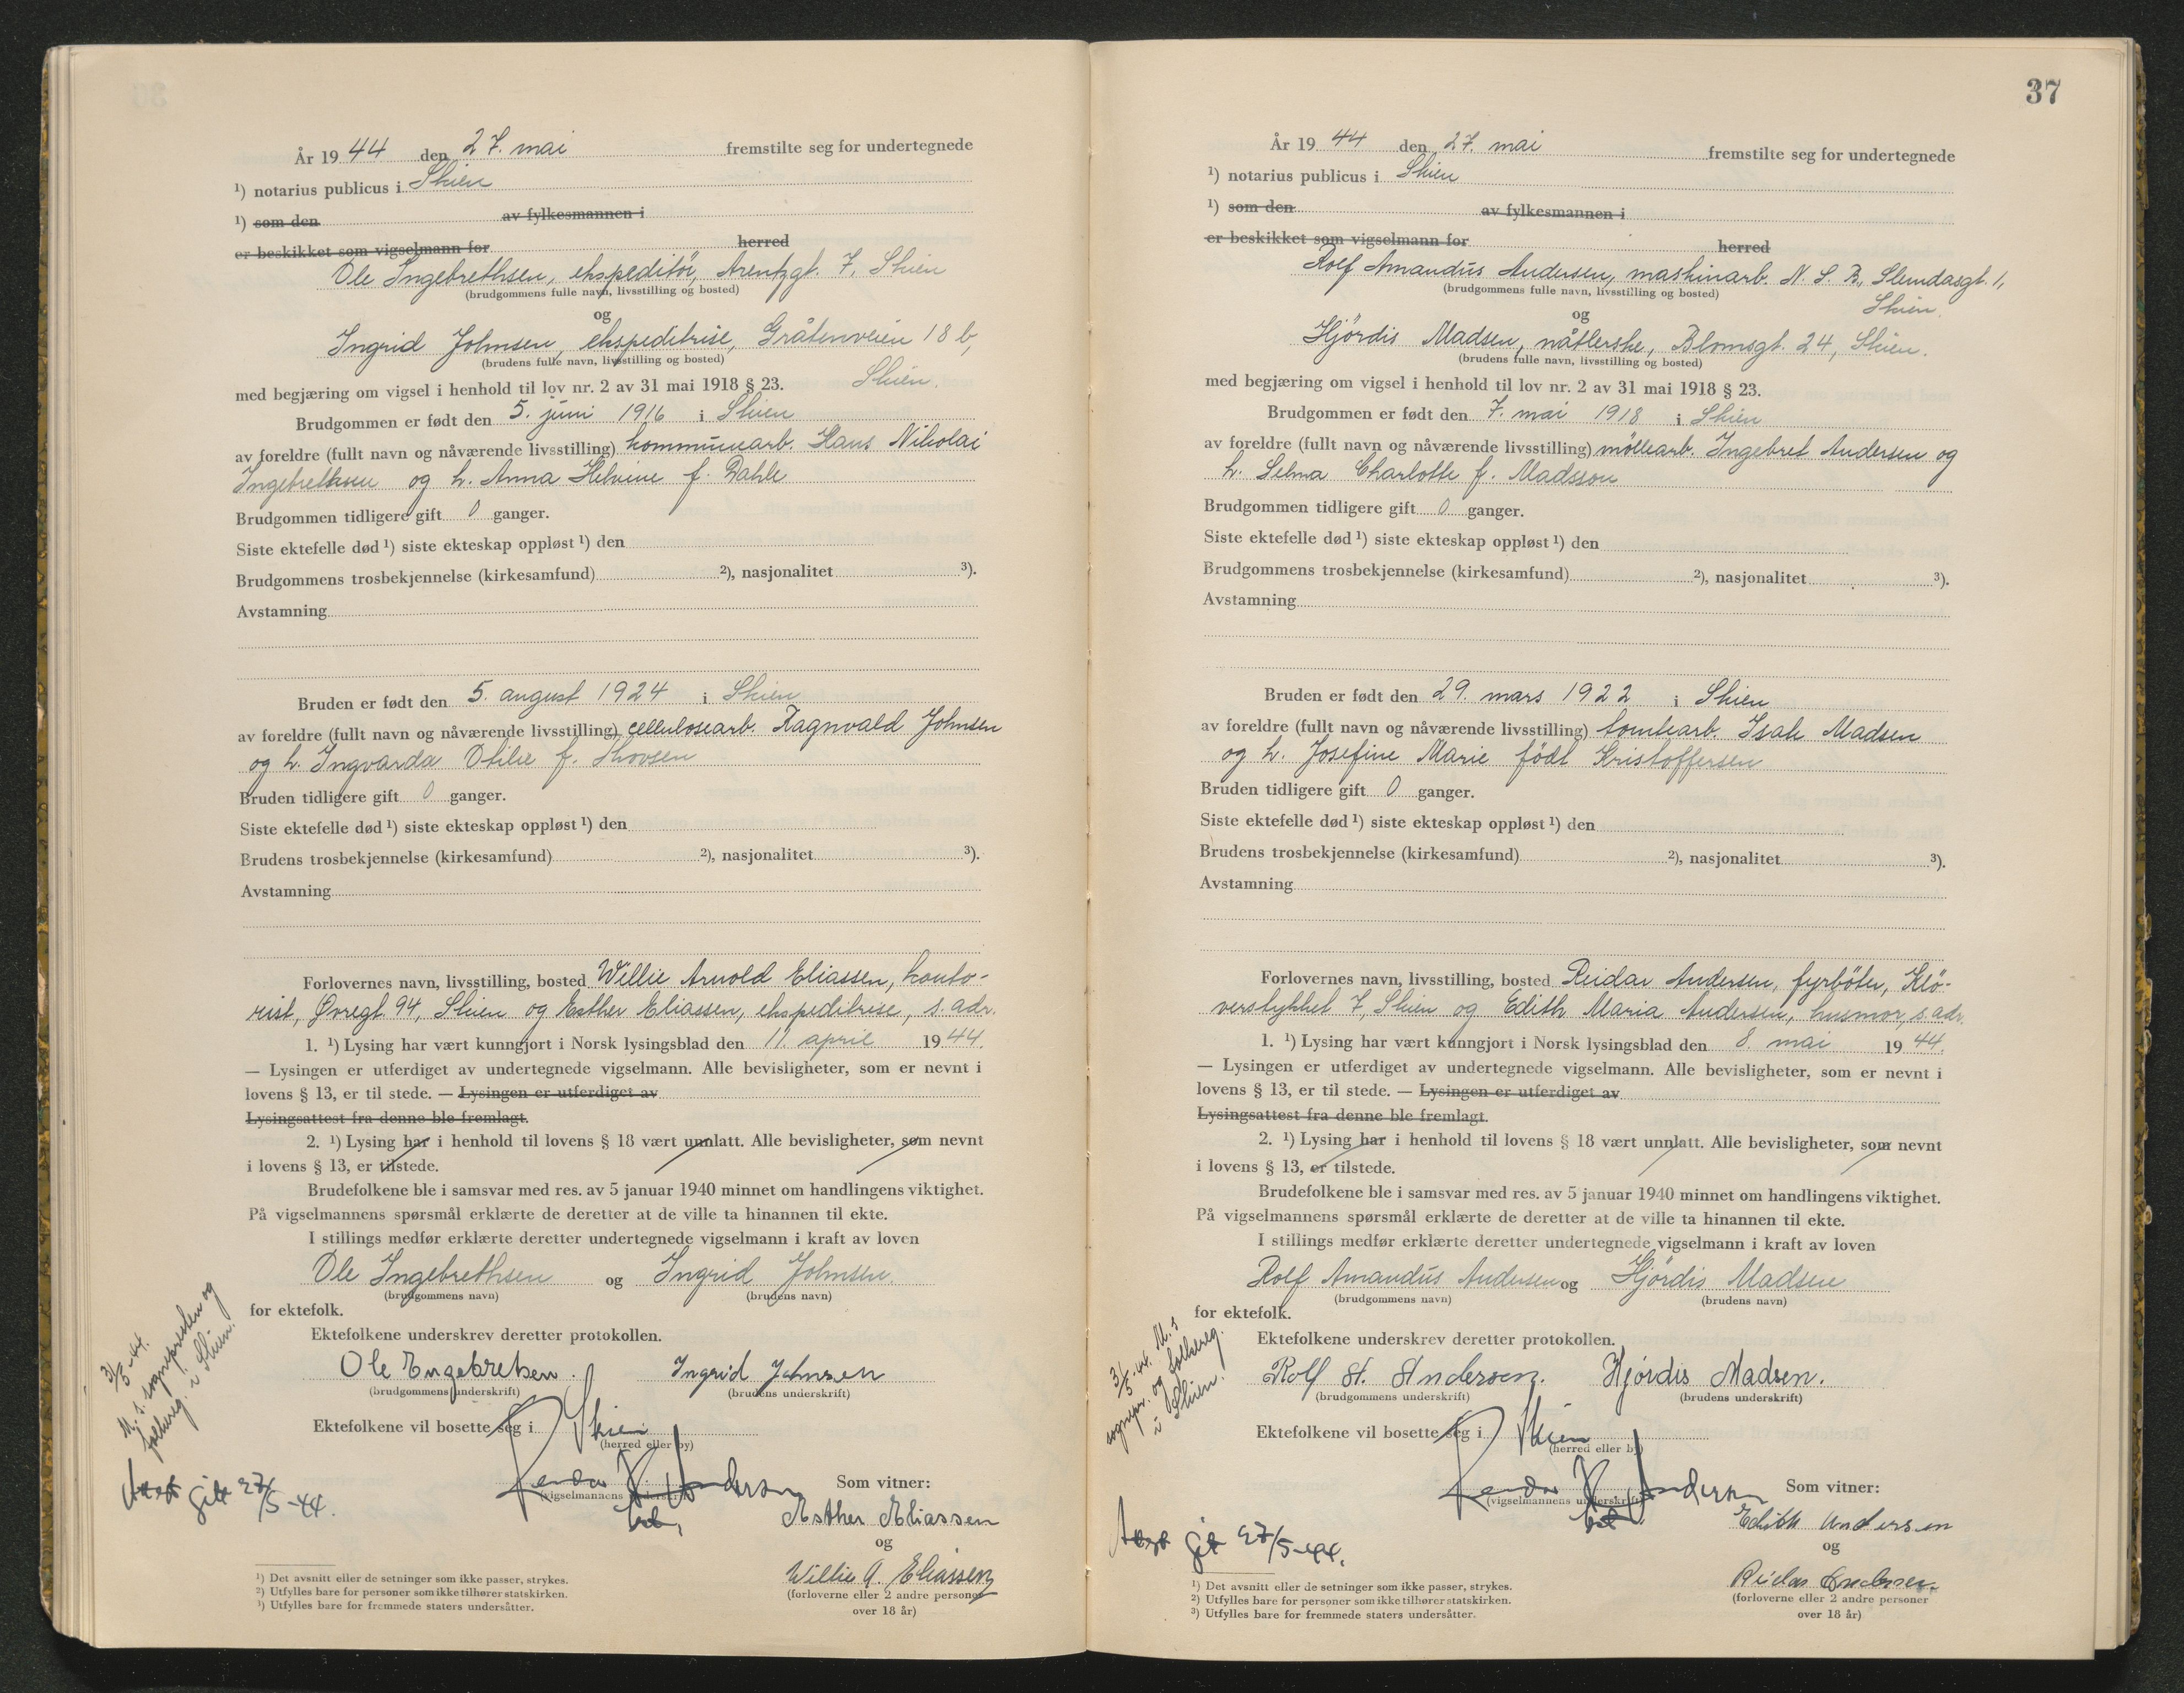 År 1944 den 27. mai fremstilte seg for undertegnede
¹) notarius publicus i Skien
¹) som den av fylkesmannen i
er beskikket som vigselmann for herred
Ole Ingebrethsen, ekspeditør, Arentzgt. 7, Skien
(brudgommens fulle navn, livsstilling og bosted)
og
Ingrid Johnsen, ekspeditrise, Gråtenveien 18 b,
(brudens fulle navn, livsstilling og bosted)
Skien.
med begjæring om vigsel i henhold til lov nr. 2 av 31 mai 1918 § 23.
Brudgommen er født den 5. juni 1916 i Skien
av foreldre (fullt navn og nåværende livsstilling) kommunearb. Hans Nikolai
Ingebrethsen og h. Anna Helvine f. Dahle
Brudgommen tidligere gift 0 ganger.
Siste ektefelle død ¹) siste ekteskap oppløst ¹) den
Brudgommens trosbekjennelse (kirkesamfund) ²), nasjonalitet ³).
Avstamning
Bruden er født den 5. august 1924 i Skien
av foreldre (fullt navn og nåværende livsstilling) cellulosearb. Ragnvald Johnsen
og h. Ingvarda Otilie f. Skovsen
Bruden tidligere gift 0 ganger.
Siste ektefelle død ¹) siste ekteskap oppløst ¹) den
Brudens trosbekjennelse (kirkesamfund) ²), nasjonalitet ³).
Avstamning
Forlovernes navn, livsstilling, bosted Willie Arnold Eliassen, konto-
rist, Øvregt. 94, Skien og Esther Eliassen, ekspeditrise, s. adr.
1. ¹) Lysing har vært kunngjort i Norsk lysingsblad den 11. april 1944.
— Lysingen er utferdiget av undertegnede vigselmann. Alle bevisligheter, som er nevnt i
lovens § 13, er til stede. — Lysingen er utferdiget av
Lysingsattest fra denne ble fremlagt.
2. ¹) Lysing har i henhold til lovens § 18 vært unnlatt. Alle bevisligheter, som nevnt
i lovens § 13, er tilstede.
Brudefolkene ble i samsvar med res. av 5 januar 1940 minnet om handlingens viktighet.
På vigselmannens spørsmål erklærte de deretter at de ville ta hinannen til ekte.
I stillings medfør erklærte deretter undertegnede vigselmann i kraft av loven
Ole Ingebrethsen og Ingrid Johnsen
(brudgommens navn) (brudens navn)
for ektefolk.
Ektefolkene underskrev deretter protokollen.
Ole Engebretsen. Ingrid Johnsen
(brudgommens underskrift) (brudens underskrift)
Ektefolkene vil bosette seg i Skien
(herred eller by)
(vigselmannens underskrift)
Som vitner:
Esther Eliassen
og
Willie A. Eliassen
(forloverne eller 2 andre personer
over 18 år)
31/5-44.
M. s. sognepresten og
folkereg. i Skien.
Attest gitt 27/5-44.
¹) Det avsnitt eller de setninger som ikke passer, strykes.
²) Utfylles bare for personer som ikke tilhører statskirken.
³) Utfylles bare for fremmede staters undersåtter.
37
År 1944 den 27. mai fremstilte seg for undertegnede
¹) notarius publicus i Skien
¹) som den av fylkesmannen i
er beskikket som vigselmann for herred
Rolf Amandus Andersen, maskinarb. N. S. B., Slemdasgt. 1,
(brudgommens fulle navn, livsstilling og bosted)
Skien.
og
Hjördis Madsen, nåtlerske, Blomsgt. 24, Skien.
(brudens fulle navn, livsstilling og bosted)
med begjæring om vigsel i henhold til lov nr. 2 av 31 mai 1918 § 23.
Brudgommen er født den 7. mai 1918 i Skien
av foreldre (fullt navn og nåværende livsstilling) möllearb. Ingebret Andersen og
h. Selma Charlotte f. Madsson
Brudgommen tidligere gift 0 ganger.
Siste ektefelle død ¹) siste ekteskap oppløst ¹) den
Brudgommens trosbekjennelse (kirkesamfund) ²), nasjonalitet ³).
Avstamning
Bruden er født den 29. mars 1922 i Skien
av foreldre (fullt navn og nåværende livsstilling) tomtearb. Isak Madsen
og h. Josefine Marie födt Kristoffersen
Bruden tidligere gift 0 ganger.
Siste ektefelle død ¹) siste ekteskap oppløst ¹) den
Brudens trosbekjennelse (kirkesamfund) ²), nasjonalitet ³).
Avstamning
Forlovernes navn, livsstilling, bosted Reidar Andersen, fyrböter, Klö-
verstykket 7, Skien og Edith Maria Andersen, husmor, s. adr.
1. ¹) Lysing har vært kunngjort i Norsk lysingsblad den 8. mai 1944.
— Lysingen er utferdiget av undertegnede vigselmann. Alle bevisligheter, som er nevnt i
lovens § 13, er til stede. — Lysingen er utferdiget av
Lysingsattest fra denne ble fremlagt.
2. ¹) Lysing har i henhold til lovens § 18 vært unnlatt. Alle bevisligheter, som nevnt
i lovens § 13, er tilstede.
Brudefolkene ble i samsvar med res. av 5 januar 1940 minnet om handlingens viktighet.
På vigselmannens spørsmål erklærte de deretter at de ville ta hinannen til ekte.
I stillings medfør erklærte deretter undertegnede vigselmann i kraft av loven
Rolf Amandus Andersen og Hjördis Madsen
(brudgommens navn) (brudens navn)
for ektefolk.
Ektefolkene underskrev deretter protokollen.
Rolf A. Andersen. Hjórdis Madsen.
(brudgommens underskrift) (brudens underskrift)
Ektefolkene vil bosette seg i Skien
(herred eller by)
(vigselmannens underskrift)
Som vitner:
Edith Andersen
og
Reidar Andersen
(forloverne eller 2 andre personer
over 18 år)
31/5-44. M. s.
sognepr. og folkereg.
i Skien.
Attest gitt 27/5-44.
¹) Det avsnitt eller de setninger som ikke passer, strykes.
²) Utfylles bare for personer som ikke tilhører statskirken.
³) Utfylles bare for fremmede staters undersåtter.